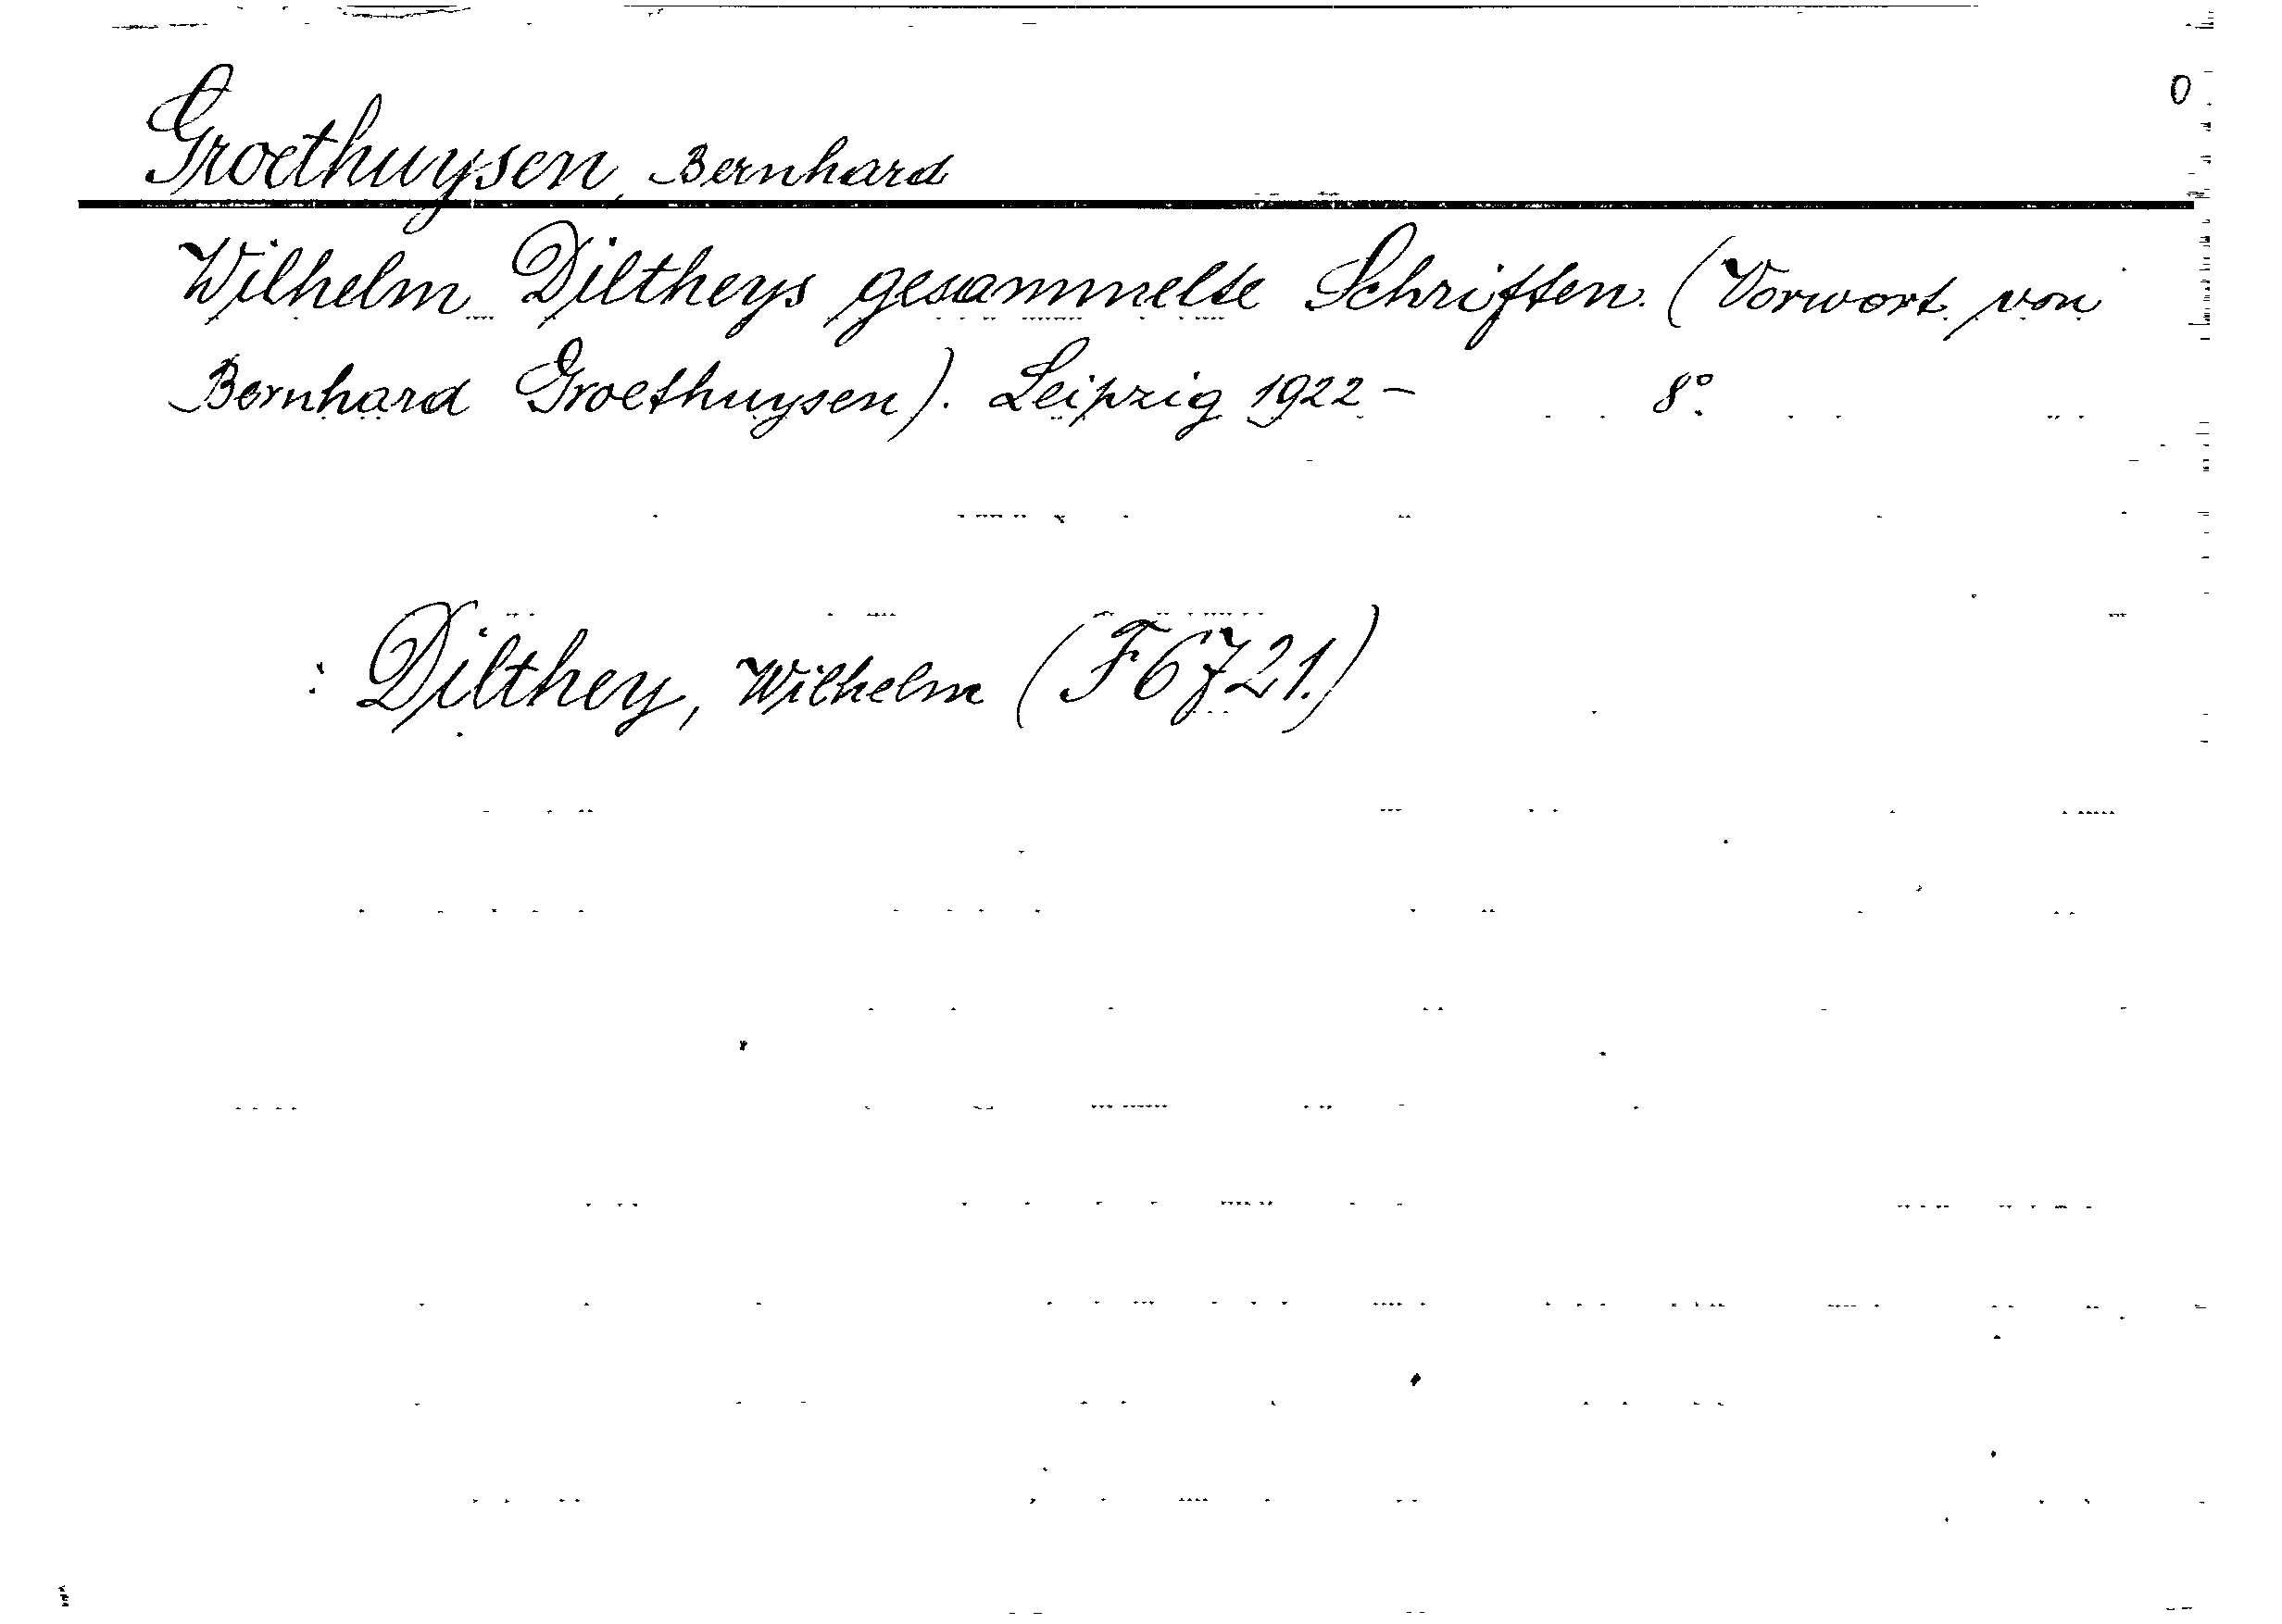 0
Groethuysen, Bernhard
Wilhelm Diltheys gesammelte Schriften. (Vorwort von
Bernhard Groethuysen). Leipzig 1922- 8°
: Dilthey, Wilhelm (F6721.)